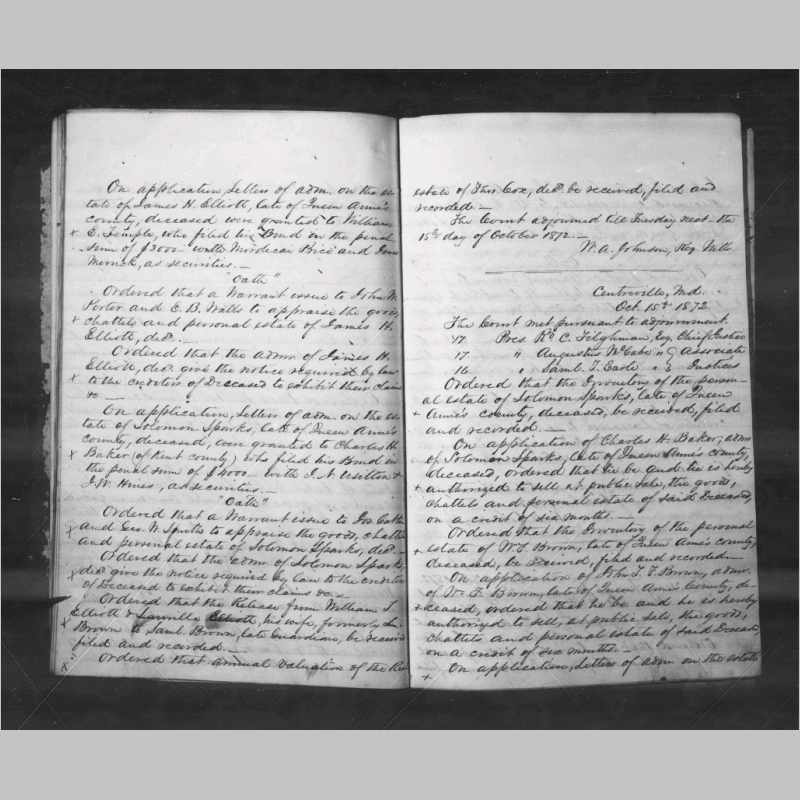 On application, Letters of adm. on the es-
tate of James H. Elliott, late of Queen Anne's
county, deceased were granted to William
E. Temple, who filed his Bond in the penal
sum of $3000 with Mordecai Price and
Merrick, as securities.—
"Oath"
Ordered that a Warrant issue to John W.
Porter and E. B. Watts to appraise the goods,
chattels and personal estate of James H.
Elliott, decd.
Ordered that the admr of James H.
Elliott, decd give the notice required by law
to the creditors of Deceased to exhibit their claims
&c —
On application, Letters of adm. on the es-
tate of Solomon Sparks, late of Queen Anne's
county, deceased, were granted to Charles H.
Baker (of Kent county) who filed his Bond in
the penal sum of $ with J. A. Usilton &
J. W. Hines, as securities.—
"Oath"
Ordered that a Warrant issue to Jos.
and Geo. W. to appraise the goods, chattels
and personal estate of Solomon Sparks, decd.—
Ordered that the admr of Solomon Sparks,
decd give the notice required by law to the creditors
of Deceased to exhibit their claims &c.—
Ordered that the Release from William T.
Elliott & Elliott, his wife, formerly
Brown to Saml Brown, late Guardian, be received
filed and recorded.—
Ordered that annual valuation of the Real
estate of Thos. Cox, decd. be received, filed and
recorded.—
The Court adjourned till Tuesday next the
15th day of October 1872.—
W. A. Johnson, Reg. Wills
Centreville, Md.
Oct. 15th 1872
The Court met pursuant to adjournment.
17. Pres. Ro. C. Tilghman, Esq. Chief Justice
17. " Augustus McCabe " } Associate
16 " Saml. T. Earle " } Justices
Ordered that the Inventory of the person-
al estate of Solomon Sparks, late of Queen
Anne's county, deceased, be received, filed
and recorded.—
On application of Charles H. Baker, admr
of Solomon Sparks, late of Queen Anne's county,
deceased, ordered that he be and he is hereby
authorized to sell at public sale, the goods,
chattels and personal estate of said Deceased,
on a credit of six months.—
Ordered that the Inventory of the personal
estate of Wm F. Brown, late of Queen Anne's county,
deceased, be received, filed and recorded.—
On application of John T. F. Brown, admr.
of Wm F. Brown, late of Queen Anne's County, de-
ceased, ordered that he be and he is hereby
authorized to sell, at public sale, the goods,
chattels and personal estate of said Deceased,
on a credit of six months.—
On application, Letters of adm on the estate